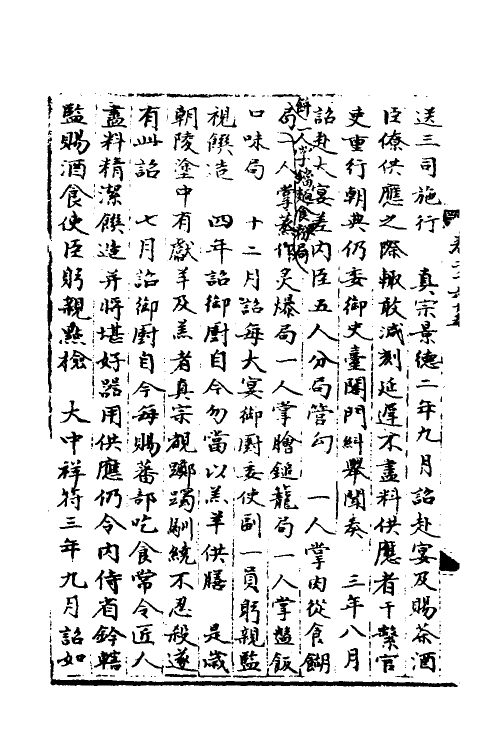 送三司施行　真宗景德二年九月詔赴宴及賜茶酒
臣僚供應之際輙敢減刻延遲不盡料供應者干繫官
吏重行朝典仍委御史臺閤門糾舉聞奏　三年八月
詔赴大宴差內臣五人分局管勾　一人掌肉從食餬
餅一人掌鐺麵食粉局
局一人掌蒸作炙爆局一人掌膾鎚龍局一人掌盤飯
口味局　十二月詔每大宴御厨委使副一員躬親監
視饌造　四年詔御厨自今勿當以羔羊供膳　是歲
朝陵塗中有獻羊及羔者真宗覩躑躅馴繞不忍殺遂
有此詔　七月詔御厨自今每賜蕃部吃食常令匠人
盡料精潔饌造并將堪好器用供應仍令內侍省鈐轄
監賜酒食使臣躬親點檢　大中祥符三年九月詔如